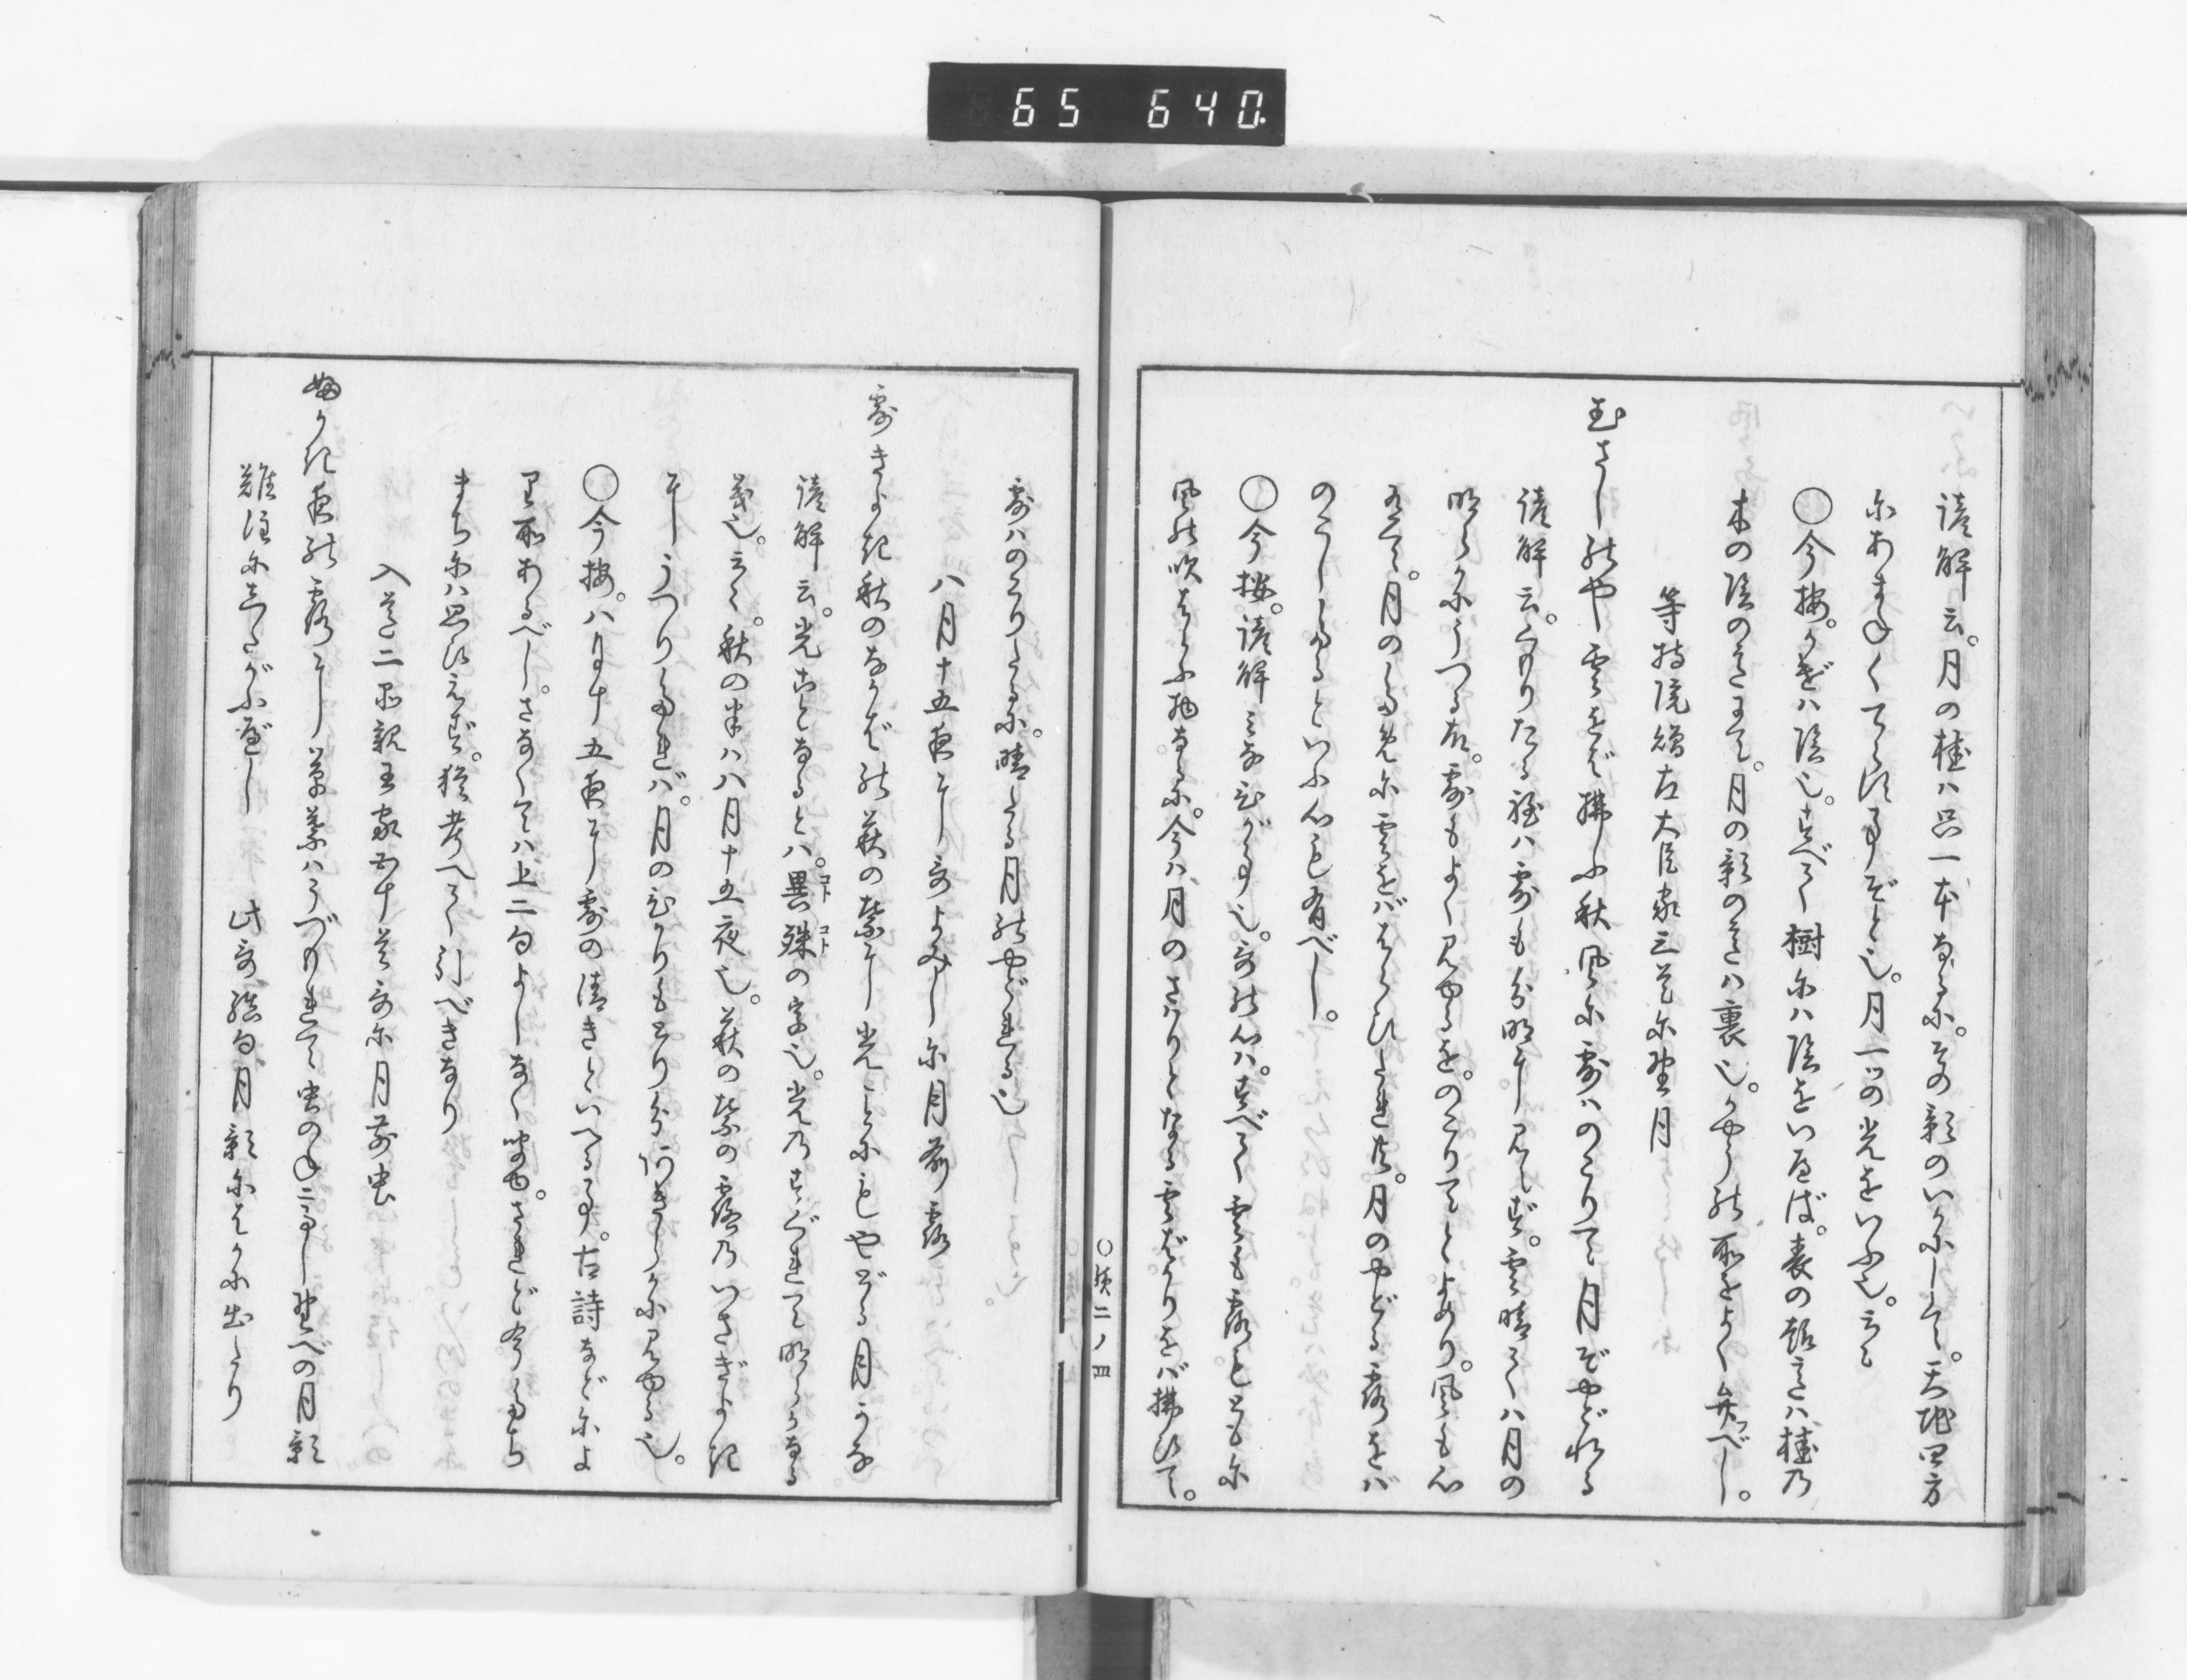 65 640.
諺解云。月の桂ハ只一本なるに。その影のいかにして。天地四方
にあまねくてらす事ぞと也。月一ツの光をいふ也。云々
○今按。かげハ陰也。すべて樹にハ陰をいへば。表の趣意ハ桂乃
木の陰のことにて。月の影のことハ裏也。かやうの所をよく弁べし。
等持院贈左大臣家三首に野月
むさし野や雲をば拂ふ秋風に露ハのこりて月ぞやどれる
諺解云。くもりたる程ハ露も分明に見えず。雲晴て八月の
明らかにうつる故。露もよく見ゆるを。のこりてとよめり。風も心
有て。月のために雲をばはらひたれ共。月のやどる露をば
のこしたるといふ心も有べし。
○今按。諺解ミなひがこと也。歌の心ハ。すべて雲も露もともに
風の吹はらふ物なるに。今ハ月のさはりとなる雲ばかりをバ拂ひて。
○続二ノ四
露ハのこりたるに。晴たる月のやどれる也
八月十五夜に歌よみしに月前露
露きよき秋のなかばの萩の葉に光ことにもやどる月かな
諺解云。光ことなるとハ。異殊の字也。光乃すぐれて明らかなる
義也。云々。秋の半ハ八月十五夜也。萩の葉の露乃いさぎよき
にうつりたれバ。月のひかりもとりわききよらかに見ゆる也。
○今按。八月十五夜に露の清きといへる事。古詩などによ
り所あるべし。さなくてハ上二句よしなく聞ゆ。されど今たち
まちにハ思ひえず。猶考へて引べきなり
入道二品親王家五十首歌に月前虫
ふかき夜の露に草葉ハうづもれて虫のねミえし野べの月影
難注にしたがふべし　此歌結句月影にはかに出たり